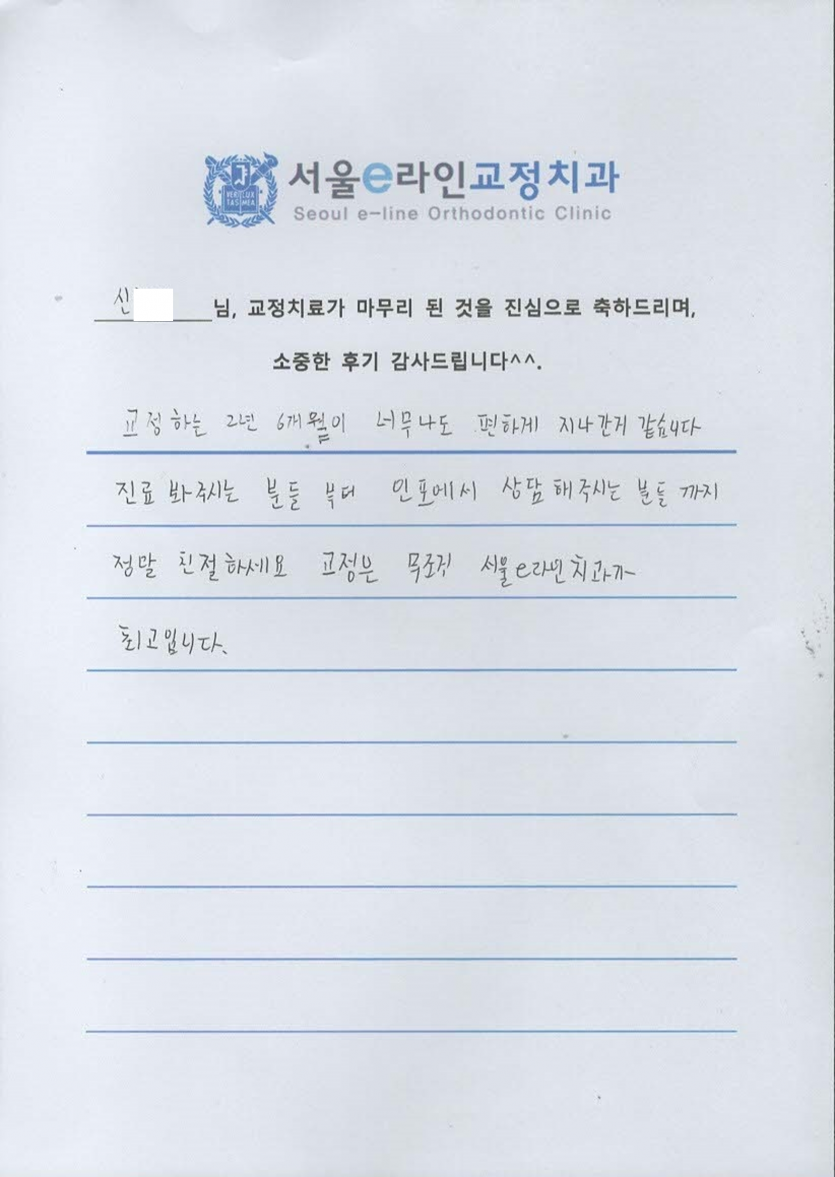 서울e라인교정치과
Seoul e-line Orthodontic Clinic
VERI LUX
TAS MEA
신 님, 교정치료가 마무리 된 것을 진심으로 축하드리며,
소중한 후기 감사드립니다^^.
교정하는 2년 6개월이 너무나도 편하게 지나간거 같습니다
진료 봐주시는 분들 부터 인포에서 상담해주시는 분들 까지
정말 친절하세요 교정은 무조건 서울e라인치과가
최고입니다.